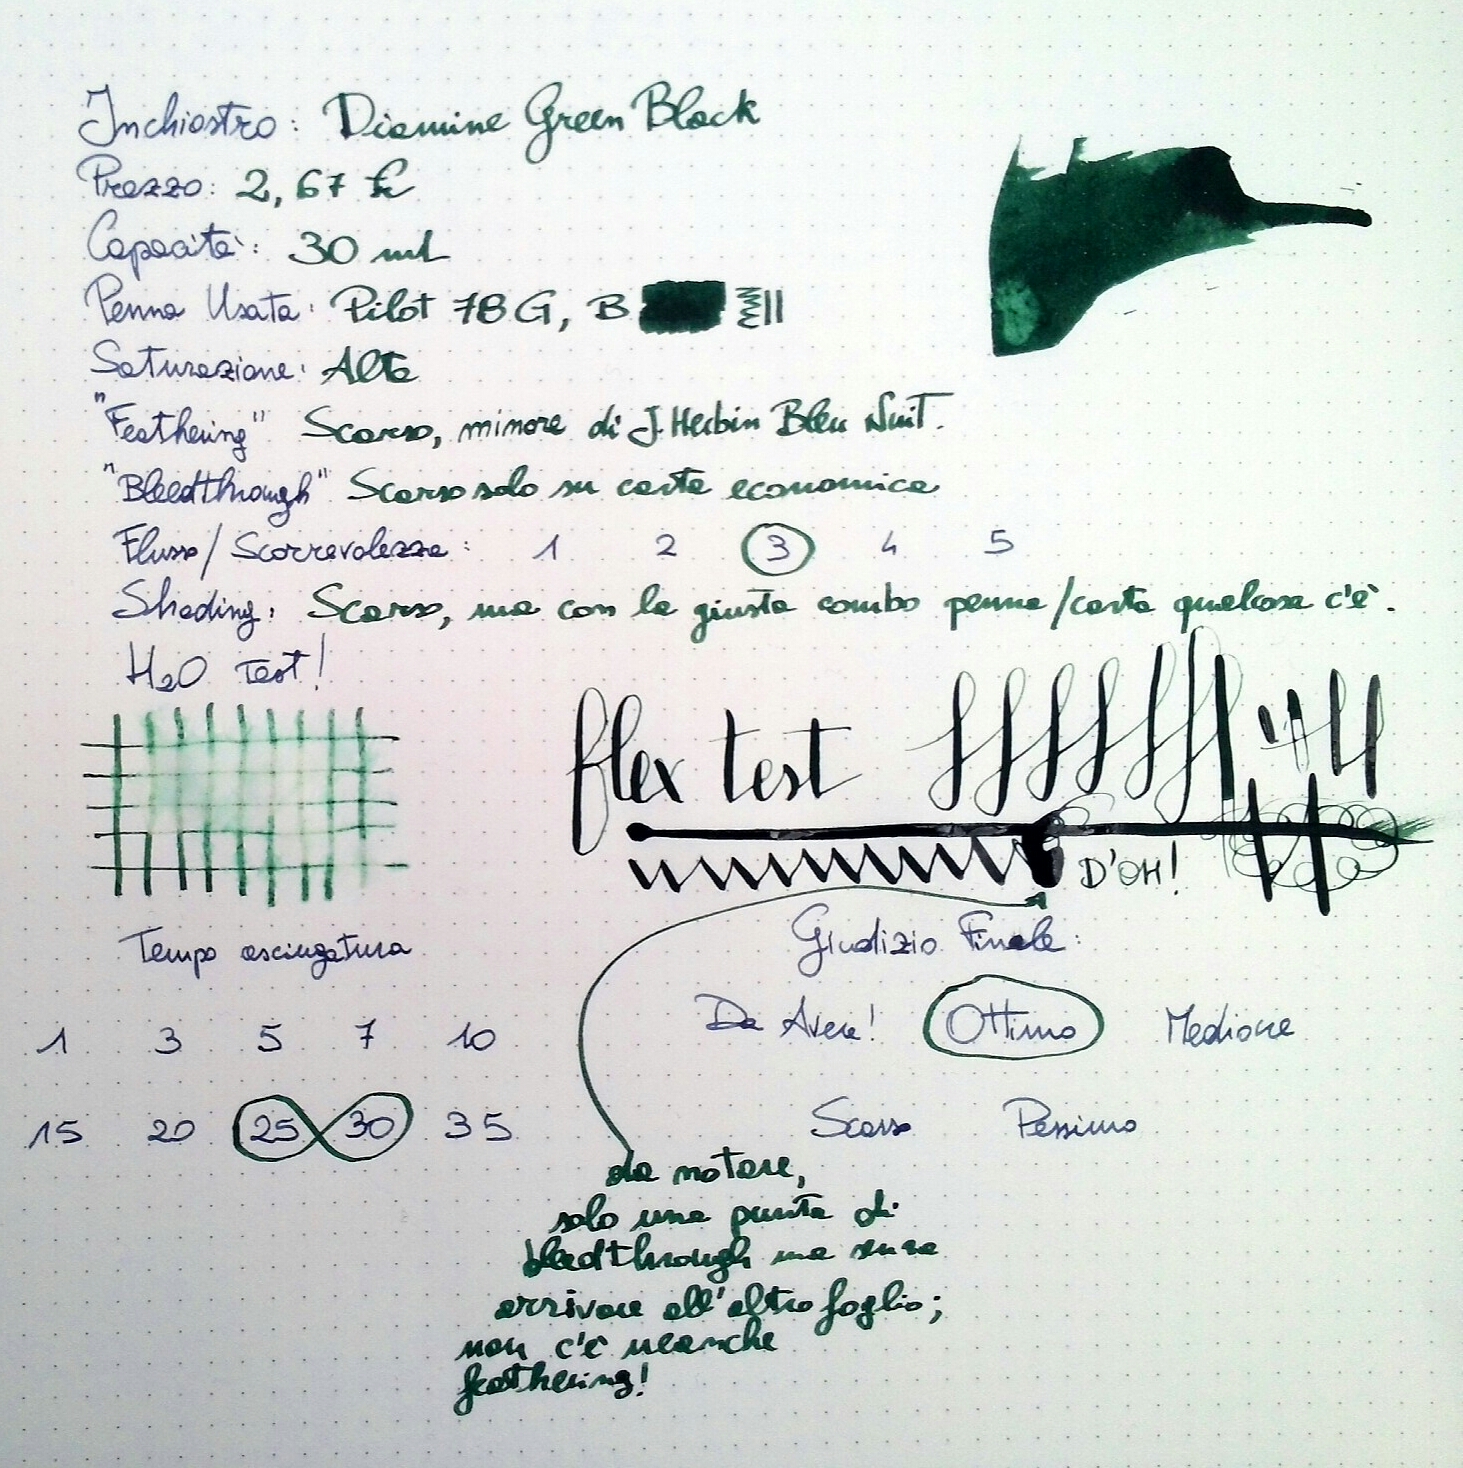 Inchiostro: Diamine Green Black
Prezzo: 2,67 €
Capacità: 30 ml
Penna Usata: Pilot 78G, B
Saturazione: Alta
"Feathering" Scarso, minore di J. Herbin Bleu Nuit.
"Bleedthrough" Scarso solo su carta economica
Flusso/Scorrevolezza: 1 2 3 4 5
Shading: Scarso, ma con la giusta combo penna/carta qualcosa c'è.
H2O Test!
flex test
D'OH!
Tempo asciugatura
1 3 5 7 10
15 20 25 30 35
Giudizio Finale:
Da Avere! Ottimo Mediocre
Scarso Pessimo
da notare,
solo una punta di
bleedthrough ma senza
arrivare all'altro foglio;
non c'è neanche
feathering!